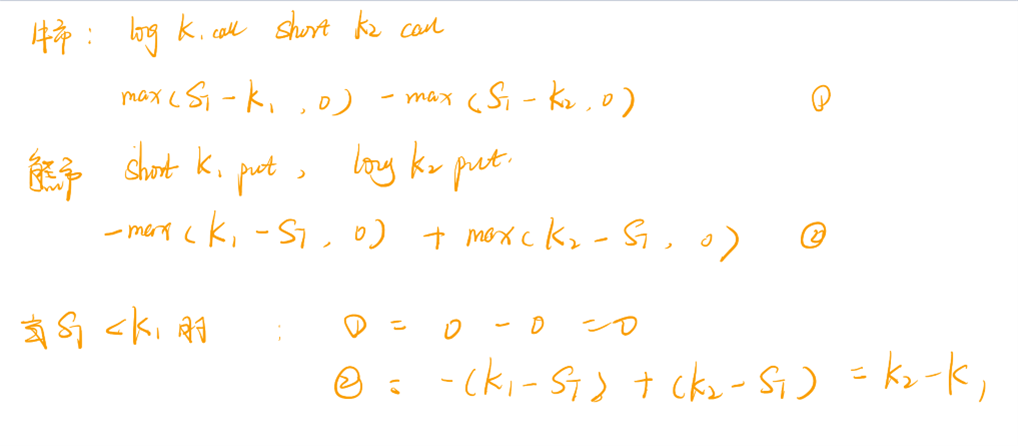 牛市: long K₁ call short K₂ call
max(S_T - K₁, 0) - max(S_T - K₂, 0) ①
熊市 short K₁ put, long K₂ put.
-max(K₁ - S_T, 0) + max(K₂ - S_T, 0) ②
当 S_T < K₁ 时 : ① = 0 - 0 = 0
② = -(K₁ - S_T) + (K₂ - S_T) = K₂ - K₁